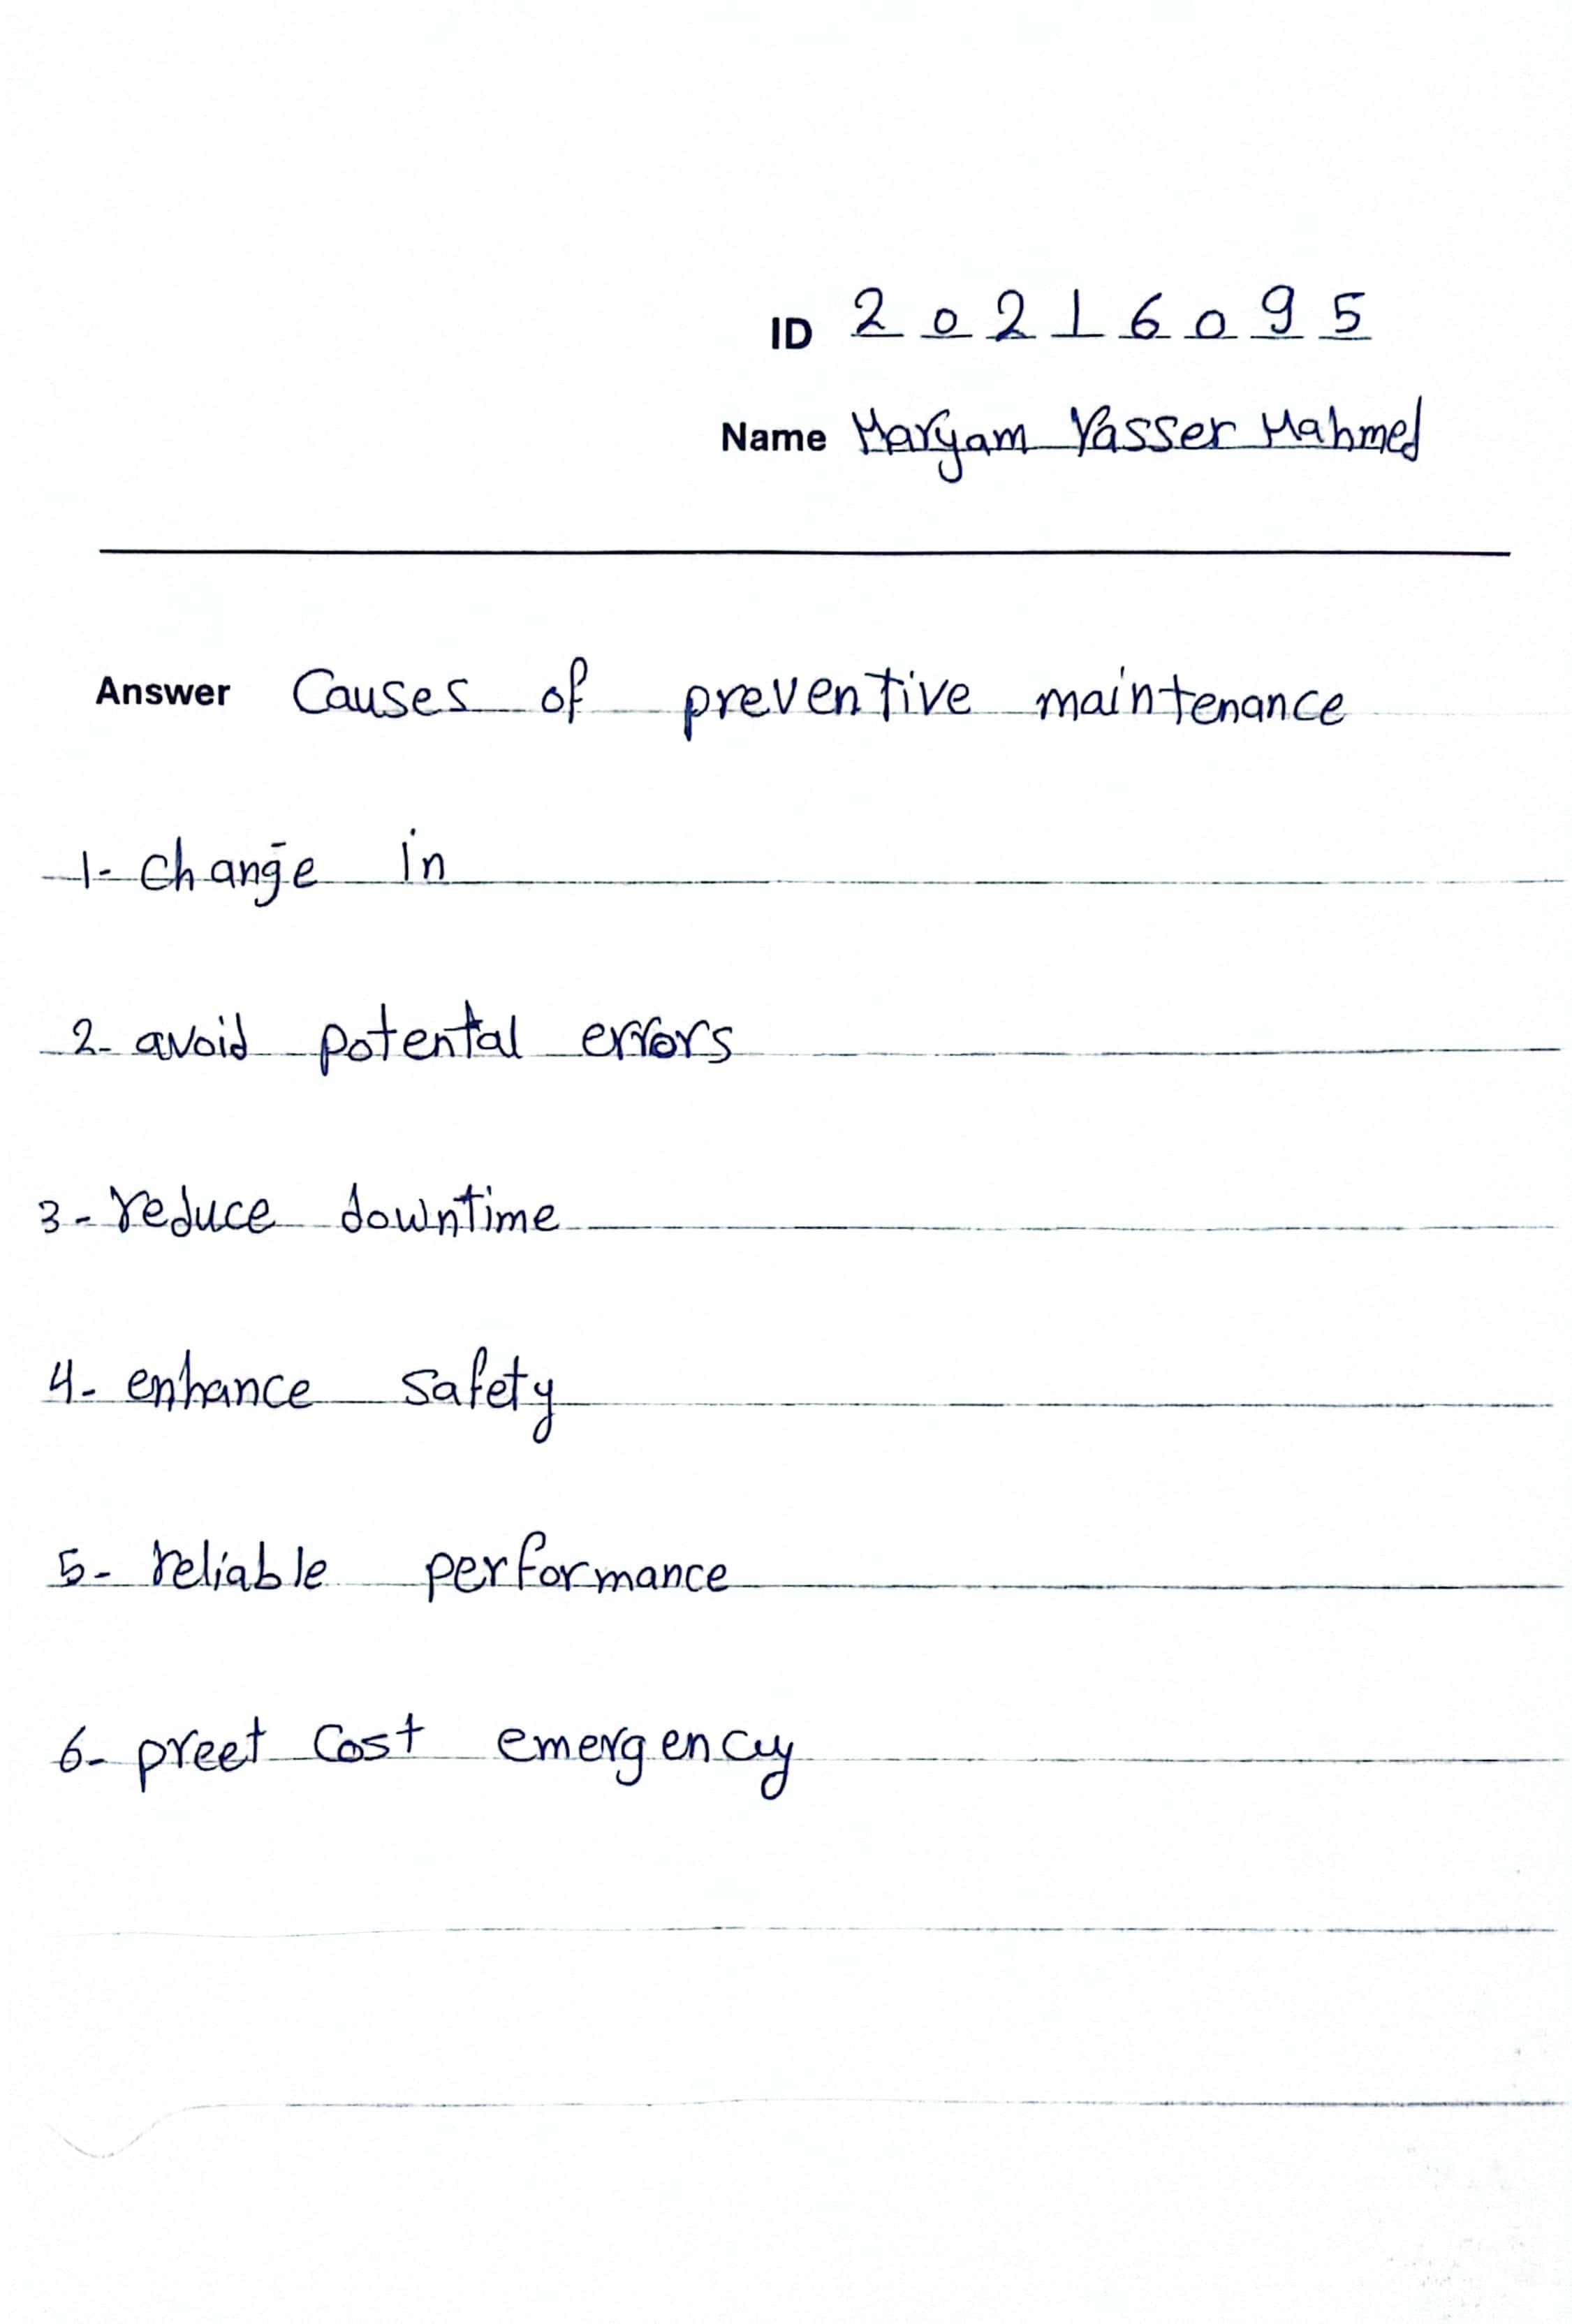 ID 20216095
Name Maryam Yasser Mahmed
Answer Causes of preventive maintenance
1- change in
2- avoid potental errors
3- reduce downtime
4- enhance safety
5- reliable performance
6- preet cost emergency